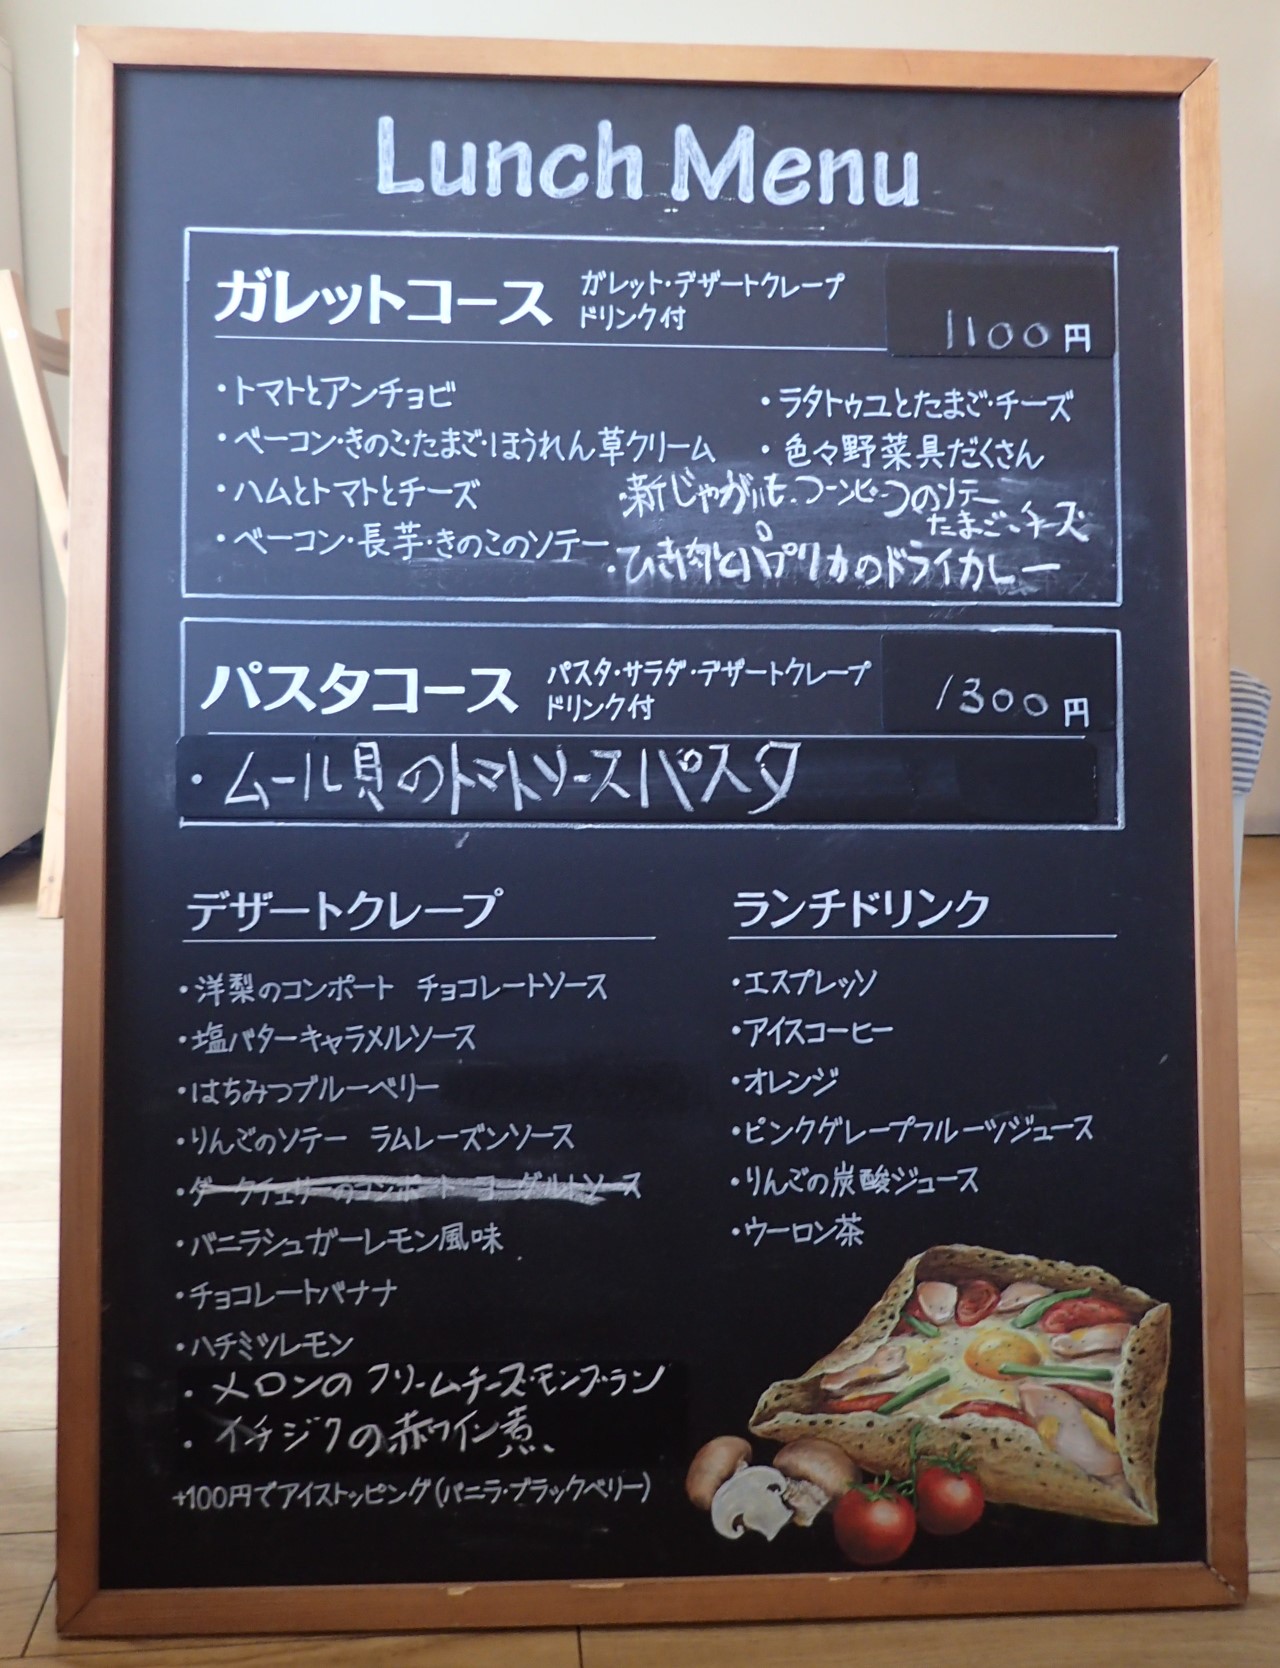 Lunch Menu
ガレットコース
ガレット・デザートクレープ
ドリンク付
1100円
・トマトとアンチョビ
・ベーコン・きのこ・たまご・ほうれん草クリーム
・ハムとトマトとチーズ
・ベーコン・長芋・きのこのソテー
・ラタトゥユとたまご・チーズ
・色々野菜具だくさん
・新じゃがいも、コーンビーフのソテー
たまご、チーズ
・ひき肉とパプリカのドライカレー
パスタコース
パスタ・サラダ・デザートクレープ
ドリンク付
1300円
・ムール貝のトマトソースパスタ
デザートクレープ
・洋梨のコンポート チョコレートソース
・塩バターキャラメルソース
・はちみつブルーベリー
・りんごのソテー ラムレーズンソース
・ダークチェリーのコンポート ヨーグルトソース
・バニラシュガーレモン風味
・チョコレートバナナ
・ハチミツレモン
・メロンのクリームチーズ・モンブラン
・イチジクの赤ワイン煮、
+100円でアイストッピング(バニラ・ブラックベリー)
ランチドリンク
・エスプレッソ
・アイスコーヒー
・オレンジ
・ピンクグレープフルーツジュース
・りんごの炭酸ジュース
・ウーロン茶